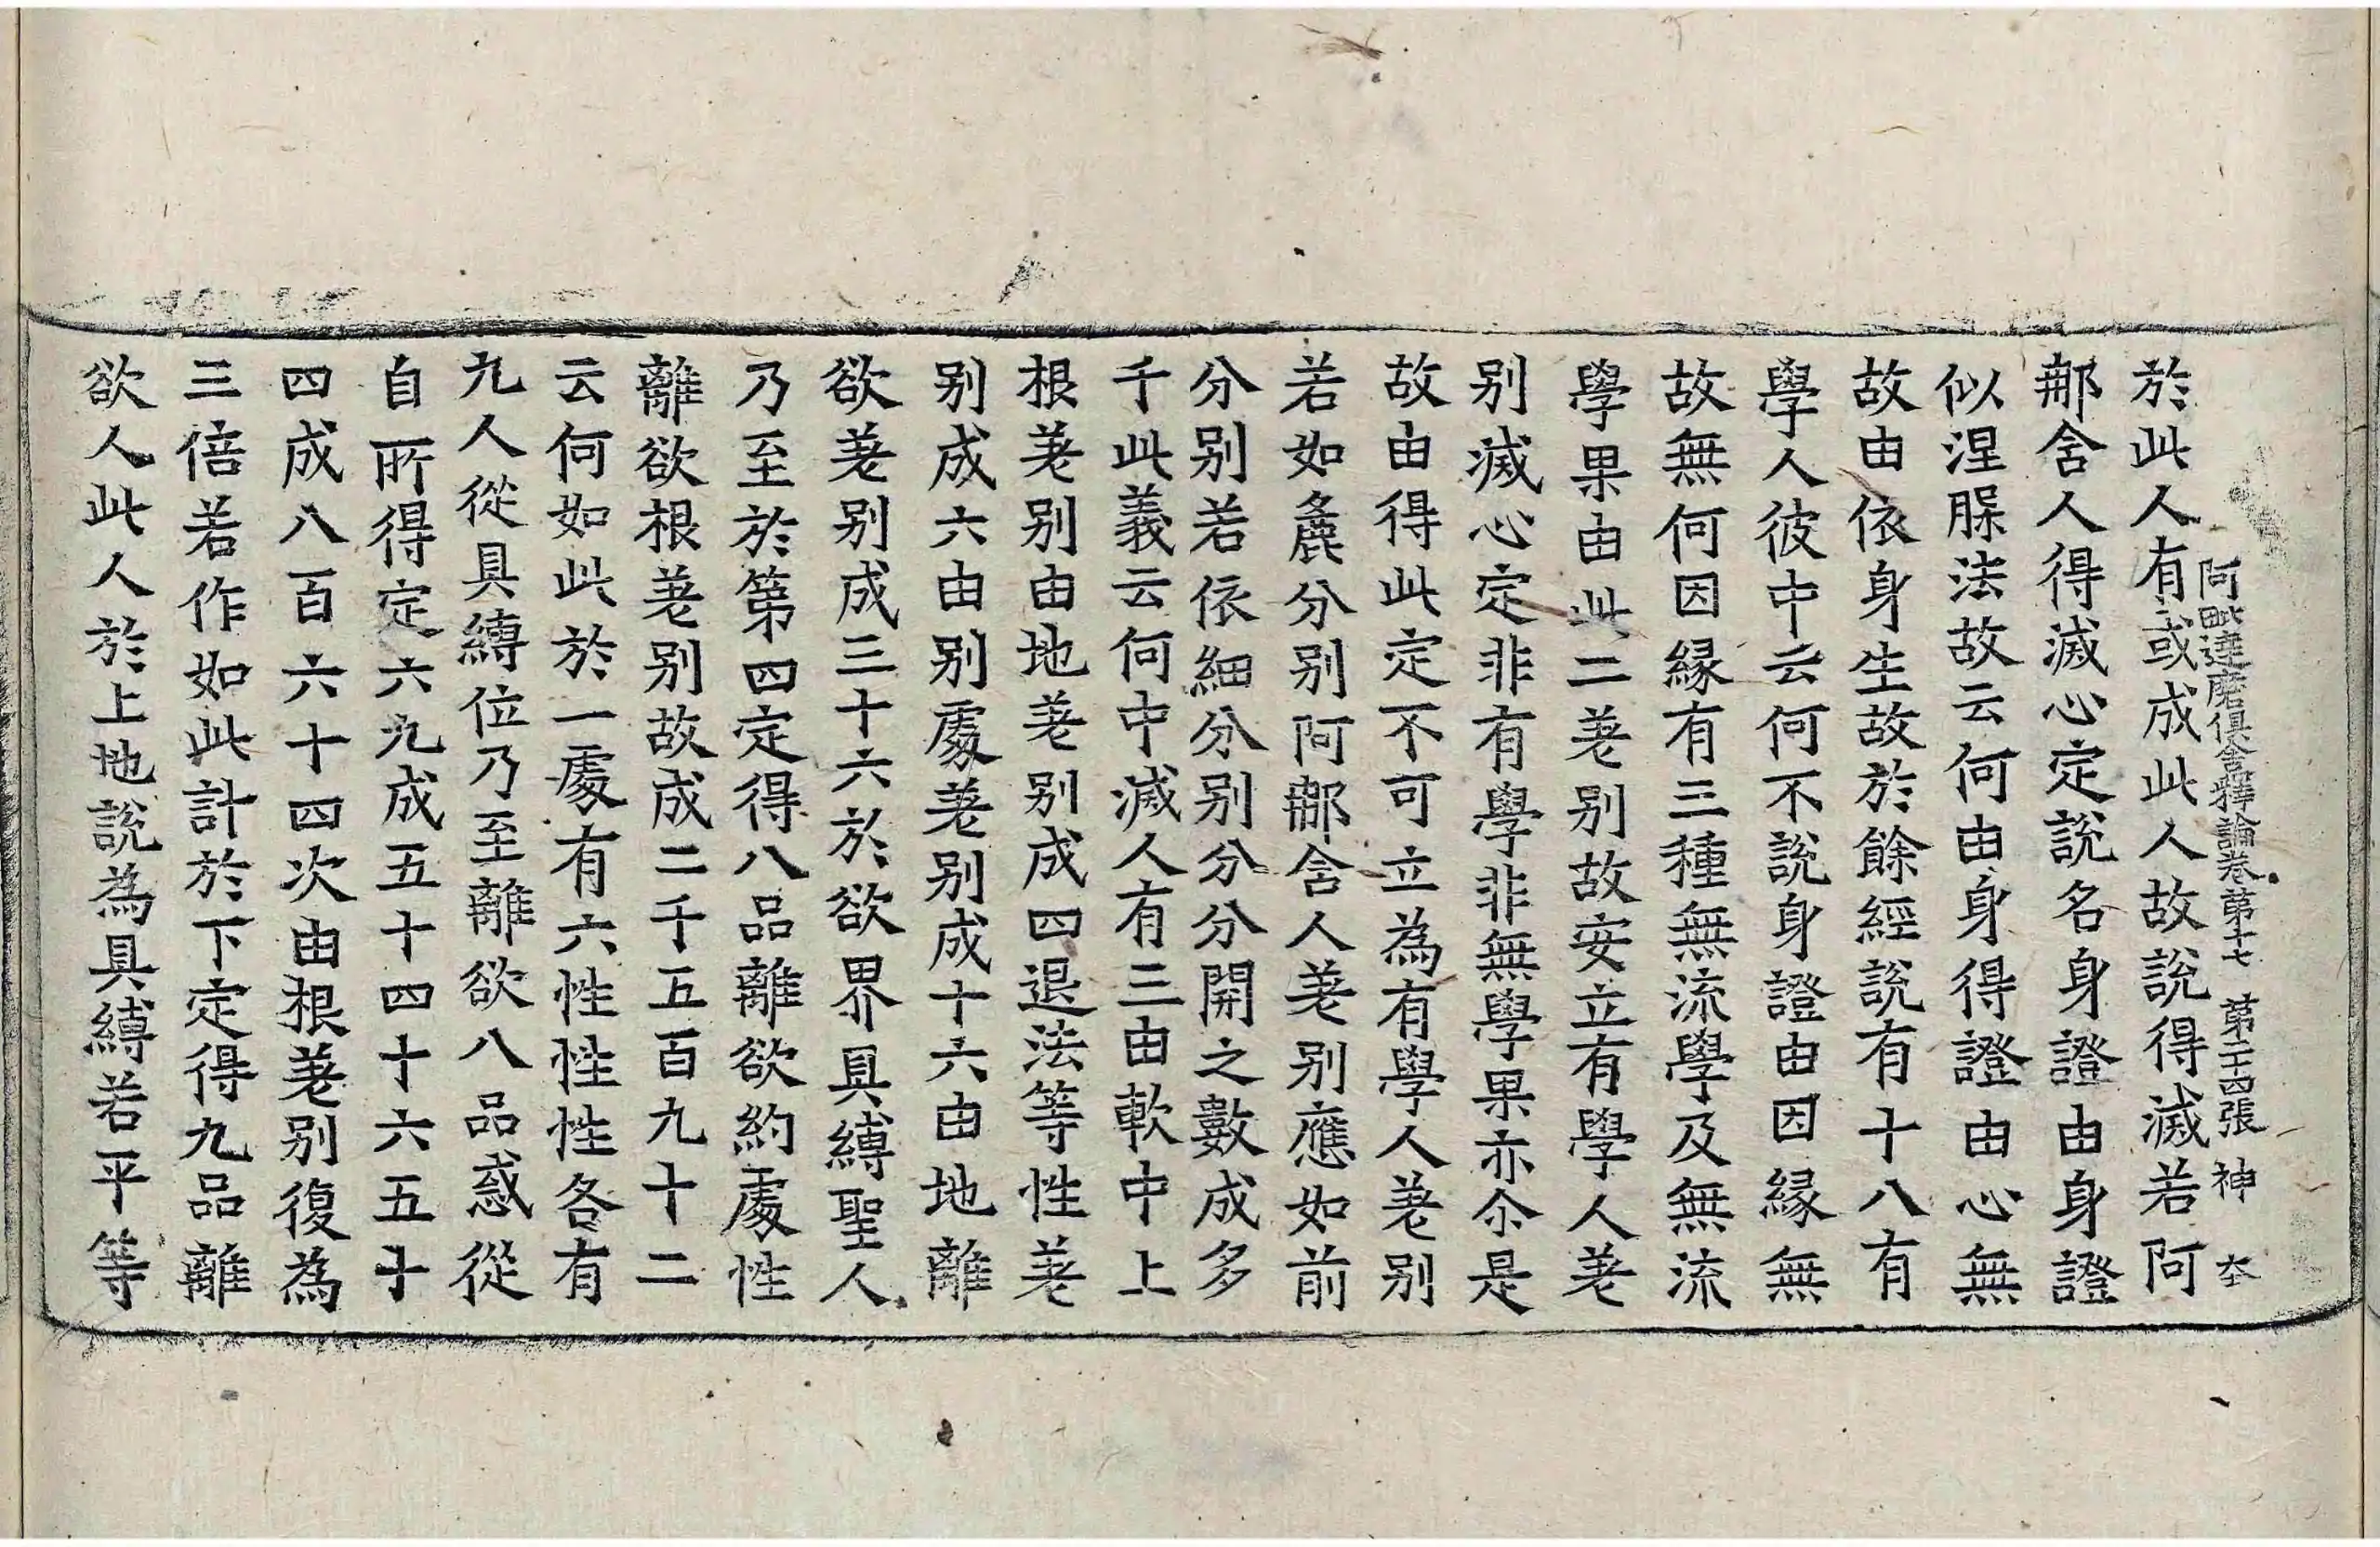 阿毗達磨俱舍釋論卷第十七　第二十四張　神
於此人有或成此人故說得滅若阿
那舍人得滅心定說名身證由身證
似涅槃法故云何由身得證由心無
故由依身生故於餘經說有十八有
學人彼中云何不說身證由因緣無
故無何因緣有三種無流學及無流
學果由此二差別故安立有學人差
別滅心定非有學非無學果亦尒是
故由得此定不可立為有學人差別
若如麁分別阿那舍人差別應如前
分別若依細分別分分開之數成多
千此義云何中滅人有三由軟中上
根差別由地差別成四退法等性差
別成六由別處差別成十六由地離
欲差別成三十六於欲界具縛聖人
乃至於第四定得八品離欲約處性
離欲根差別故成二千五百九十二
云何如此於一處有六性性性各有
九人從具縛位乃至離欲八品惑從
自所得定六九成五十四十六五十
四成八百六十四次由根差別復為
三倍若作如此計於下定得九品離
欲人此人於上地說為具縛若平等